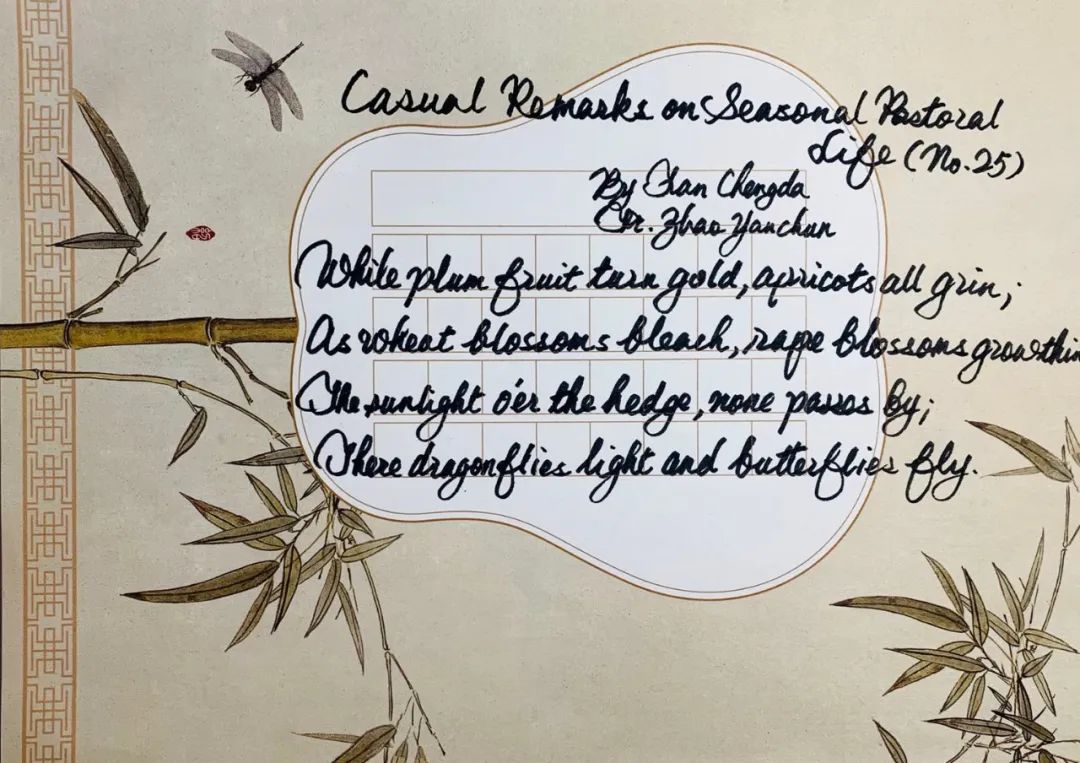 Casual Remarks on Seasonal Pastoral
Life (No.25)
By Fan Chengda
Tr. Zhao Yanchun
While plum fruit turn gold, apricots all grin;
As wheat blossoms bleach, rape blossoms grow thin
The sunlight o'er the hedge, none passes by;
There dragonflies light and butterflies fly.